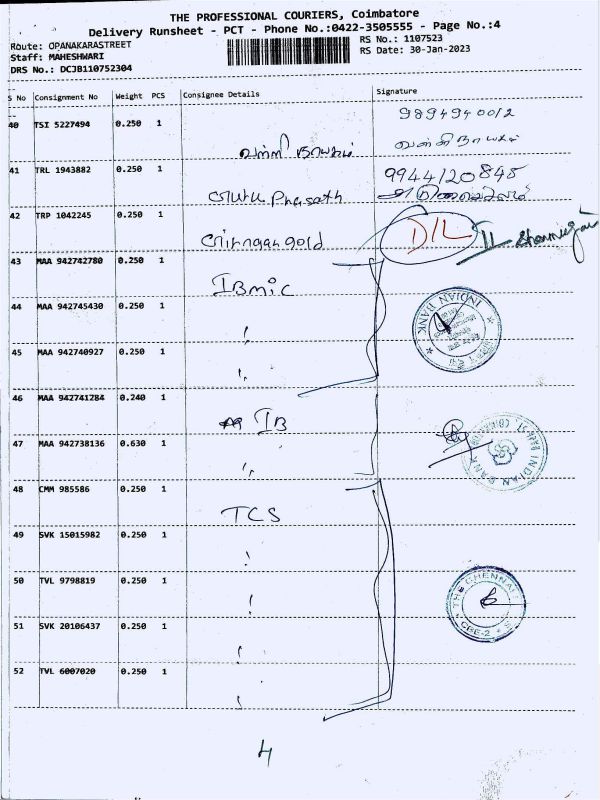 THE PROFESSIONAL COURIERS, Coimbatore
Delivery Runsheet - PCT - Phone No.:0422-3505555 - Page No.:4
Route: OPANAKARASTREET
RS No.: 1107523
Staff: MAHESHWARI
RS Date: 30-Jan-2023
DRS No.: DCJB110752304
S No Consignment No Weight PCS Consignee Details Signature
40 TSI 5227494 0.250 1 9894940012
41 TRL 1943882 0.250 1 Prasath 9944120845
42 TRP 1042245 0.250 1 gold D/L
43 MAA 942742780 0.250 1 IBMIC
44 MAA 942745430 0.250 1 INDIAN BANK
45 MAA 942740927 0.250 1
46 MAA 942741284 0.240 1 IB
47 MAA 942738136 0.630 1 INDIAN BANK
48 CMM 985586 0.250 1 TCS
49 SVK 15015982 0.250 1
50 TVL 9798819 0.250 1 THE CHENNAI
51 SVK 20106437 0.250 1 CBE-2
52 TVL 6007020 0.250 1
4